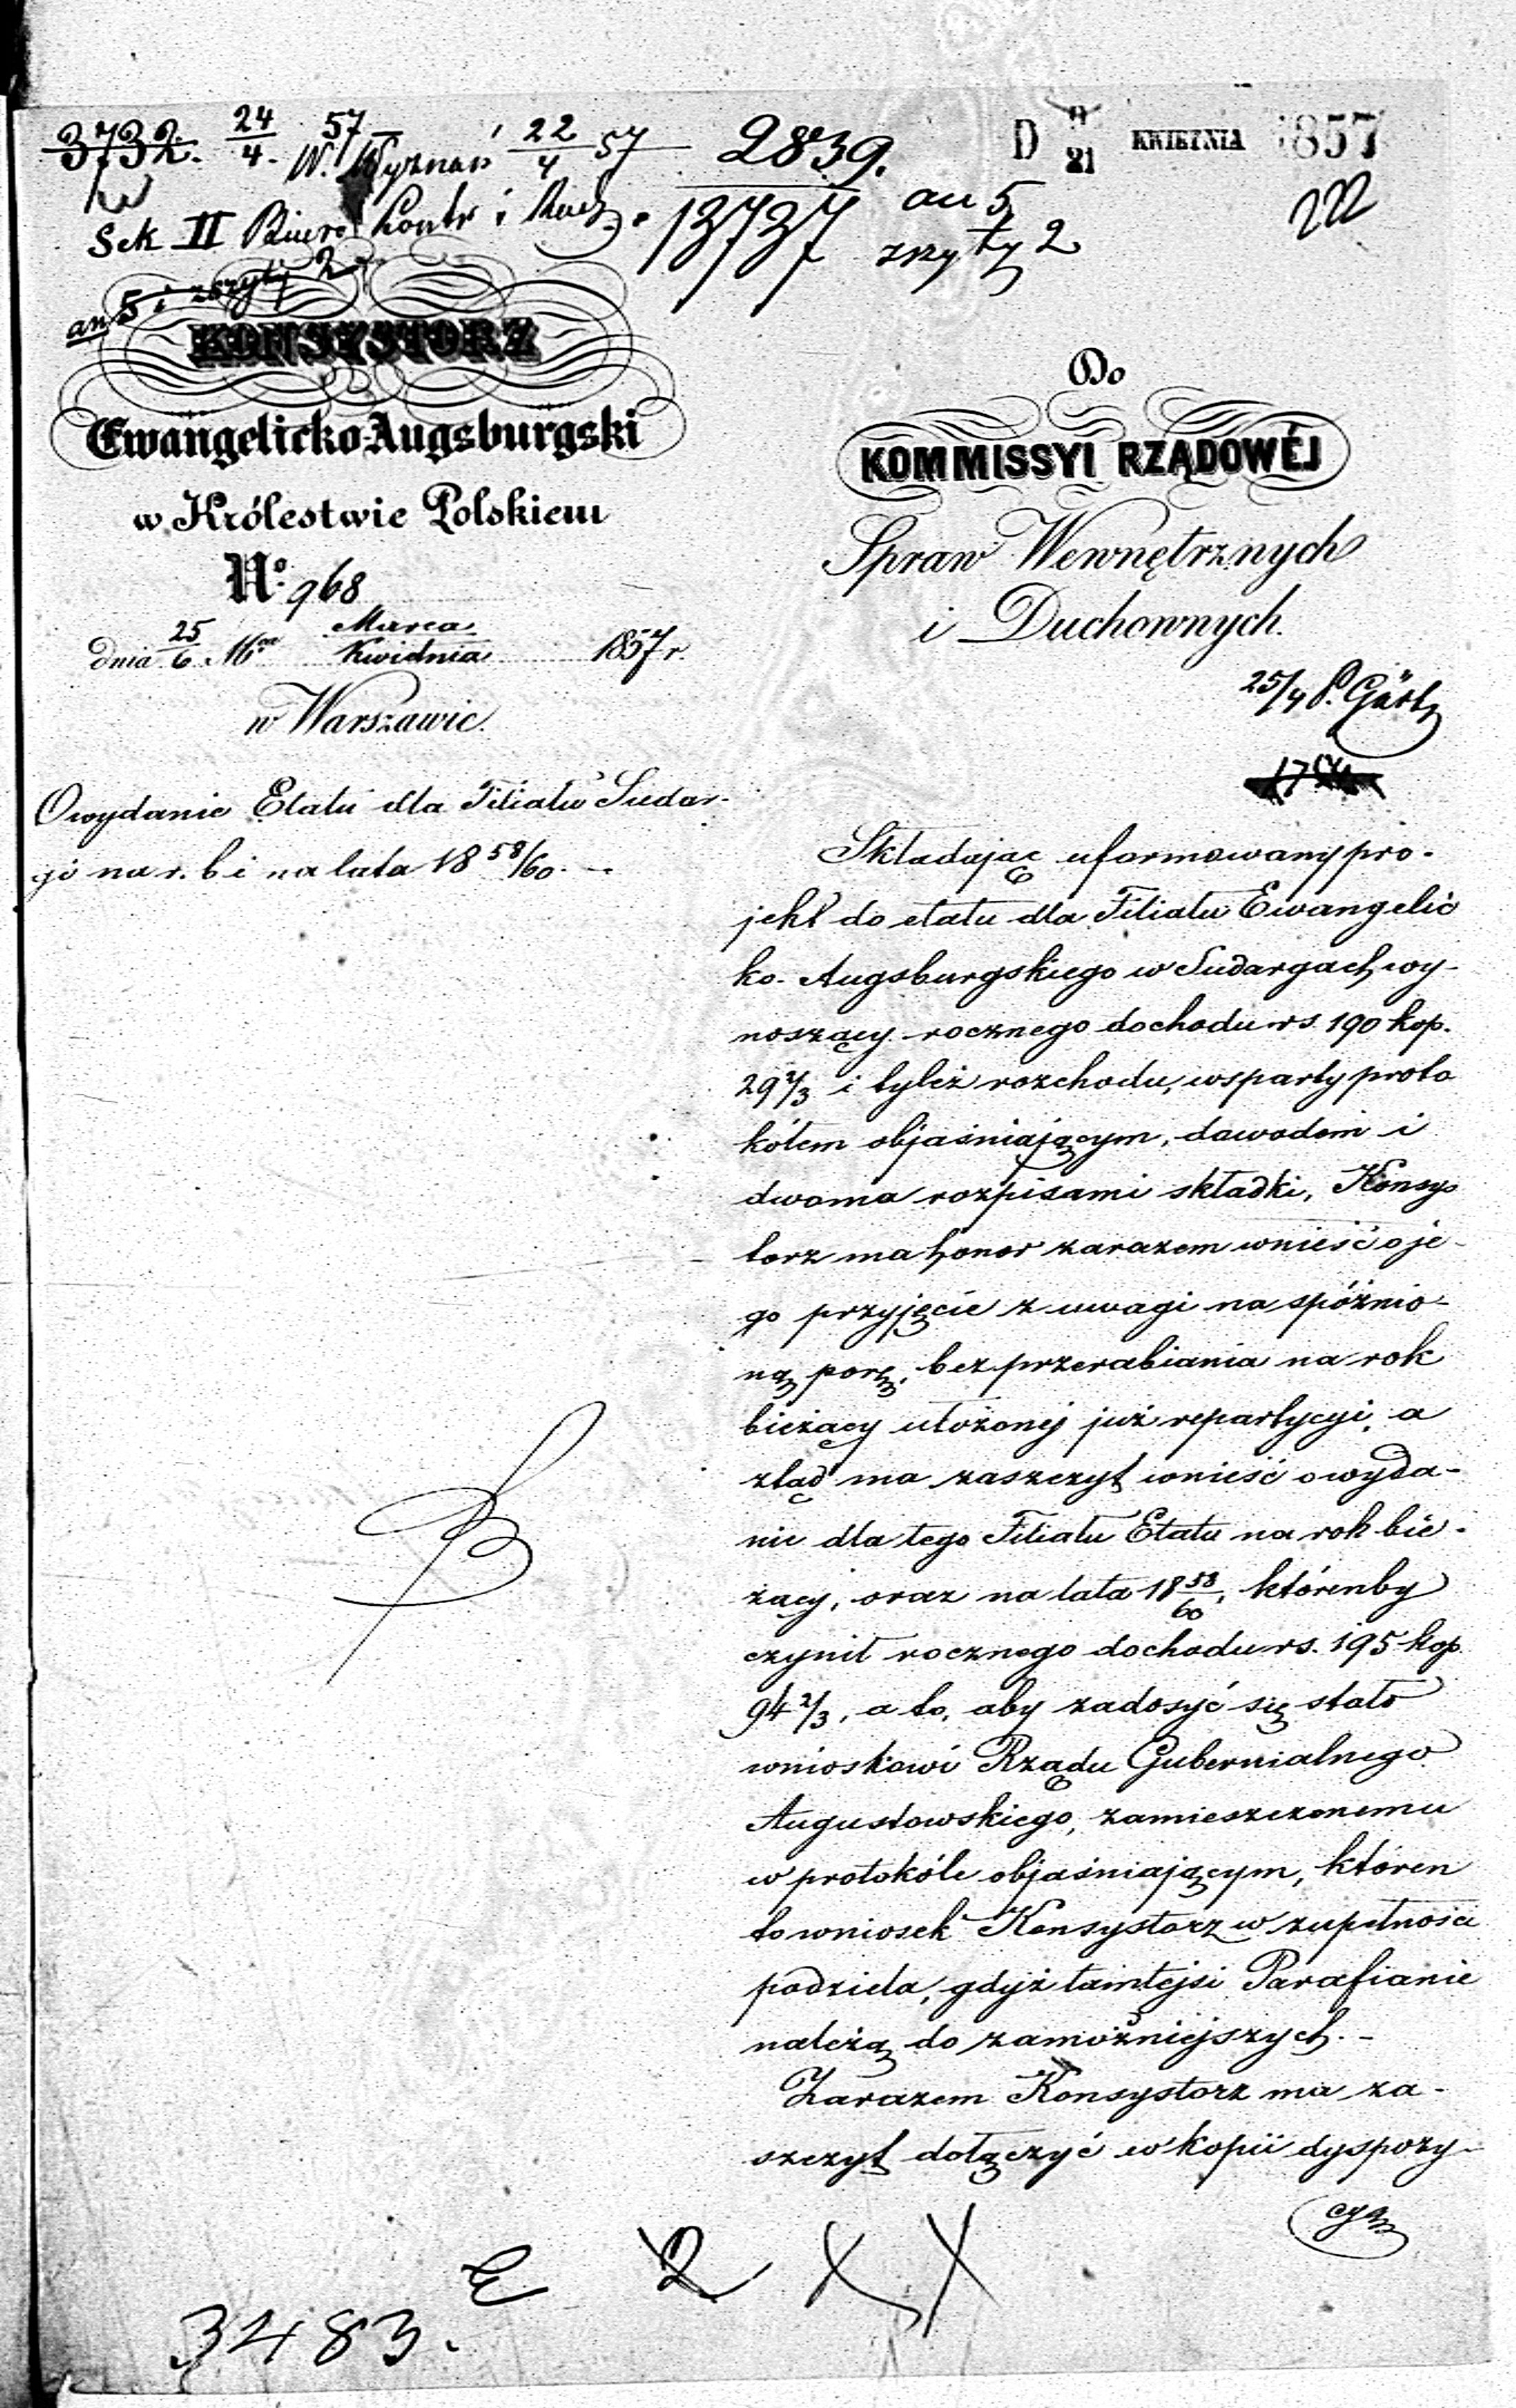 3732. 24/4. 57 W. Wyznań 22/4 57 2839. D 9/21 KWIETNIA 1857
Sek II Biuro Kontr i Rach. 13737 an 5 222
zszyty 2
an 5 i zszyty 2
KONSYSTORZ
Ewangelicko-Augsburgski
w Królestwie Polskiem
No. 968
dnia 25/6 Mca Marca/Kwidnia 1857 r.
w Warszawie.
O wydanie Etatu dla Filiału Sudar-
gi na r. b i na lata 18 58/60. -
Do
KOMMISSYI RZĄDOWÉJ
Spraw Wewnętrznych
i Duchownych.
25/4 P. Gärtz
Składając uformowany pro-
jekt do etatu dla Filiału Ewangelic
ko-Augsburgskiego w Sudargach, wy-
noszący rocznego dochodu rs. 190 kop.
29 2/3 i tyleż rozchodu, wsparty proto
kółem objaśniającym, dowodem i
dwoma rozpisami składki, Konsys
torz ma honor zarazem wnieść o je-
go przyjęcie z uwagi na spóźnio-
ną porę, bez przerabiania na rok
bieżący ułożonej już repartycyi, a
ztąd ma zaszczyt wnieść o wyda-
nie dla tego Filiału Etatu na rok bie-
żący, oraz na lata 18 58/60, którenby
czynił rocznego dochodu rs. 195 kop
94 2/3, a to, aby zadosyć się stało
wnioskowi Rządu Gubernialnego
Augustowskiego, zamieszczonemu
w protokóle objaśniającym, któren
to wniosek Konsystorz w zupełności
podziela, gdyż tamtejsi Parafianie
należą do zamożniejszych. -
Zarazem Konsystorz ma za-
szczyt dołączyć w kopii dyspozy-
cyą
3483.